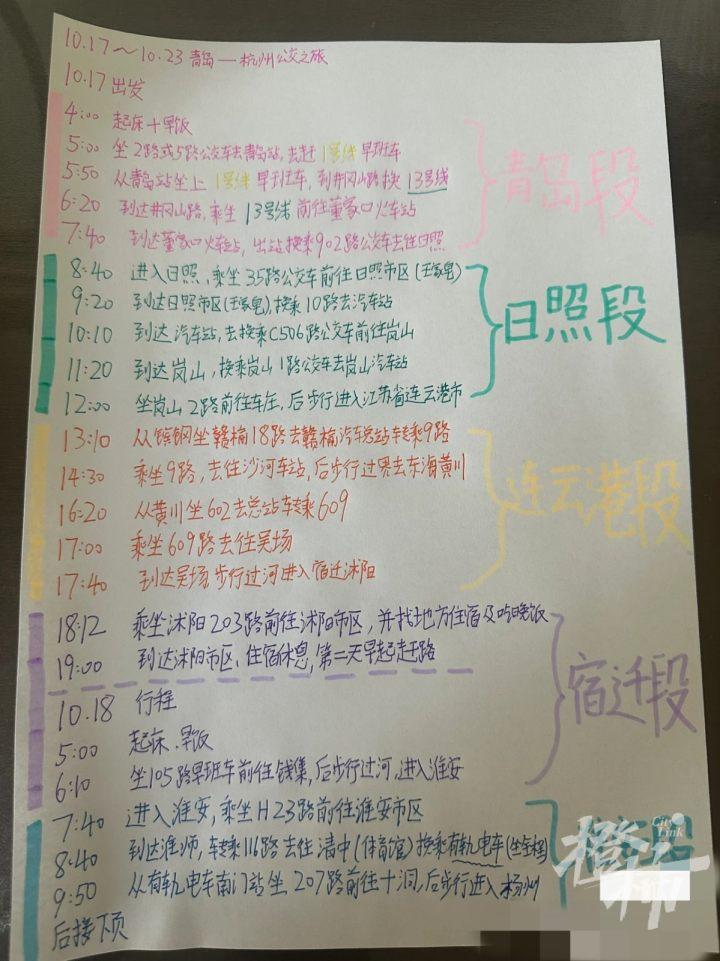 10.17～10.23 青岛—杭州公交之旅
10.17出发
4:00 起床+早饭
5:00 坐2路或5路公交车去青岛站,去赶1号线早班车
5:50 从青岛站坐上1号线早班车,到井冈山路换13号线
6:20 到达井冈山路,乘坐13号线前往董家口火车站
7:40 到达董家口火车站,出站换乘902路公交车去往日照
青岛段
8:40 进入日照,乘坐35路公交车前往日照市区(王家皂)
9:20 到达日照市区(王家皂),换乘10路去汽车站
10:10 到达汽车站,去换乘C506路公交车前往岚山
11:20 到达岚山,换乘岚山1路公交车去岚山汽车站
12:00 坐岚山2路前往车庄,后步行进入江苏省连云港市
日照段
13:10 从镔钢坐赣榆18路去赣榆汽车总站转乘9路
14:30 乘坐9路,去往沙河车站,后步行过界去东海黄川
16:20 从黄川坐602去总站转乘609
17:00 乘坐609路去往吴场
17:40 到达吴场步行过河进入宿迁沭阳
连云港段
18:12 乘坐沭阳203路前往沭阳市区,并找地方住宿及吃晚饭
19:00 到达沭阳市区,住宿休息,第二天早起赶路
10.18 行程
5:00 起床.早饭
6:10 坐105路早班车前往钱集,后步行过河,进入淮安
宿迁段
7:40 进入淮安,乘坐H23路前往淮安市区
8:40 到达淮师,转乘116路去往清中(体育馆)换乘有轨电车(坐全程)
9:50 从有轨电车南门站坐207路前往十洞,后步行进入扬州
后接下页
橙柿
City Link